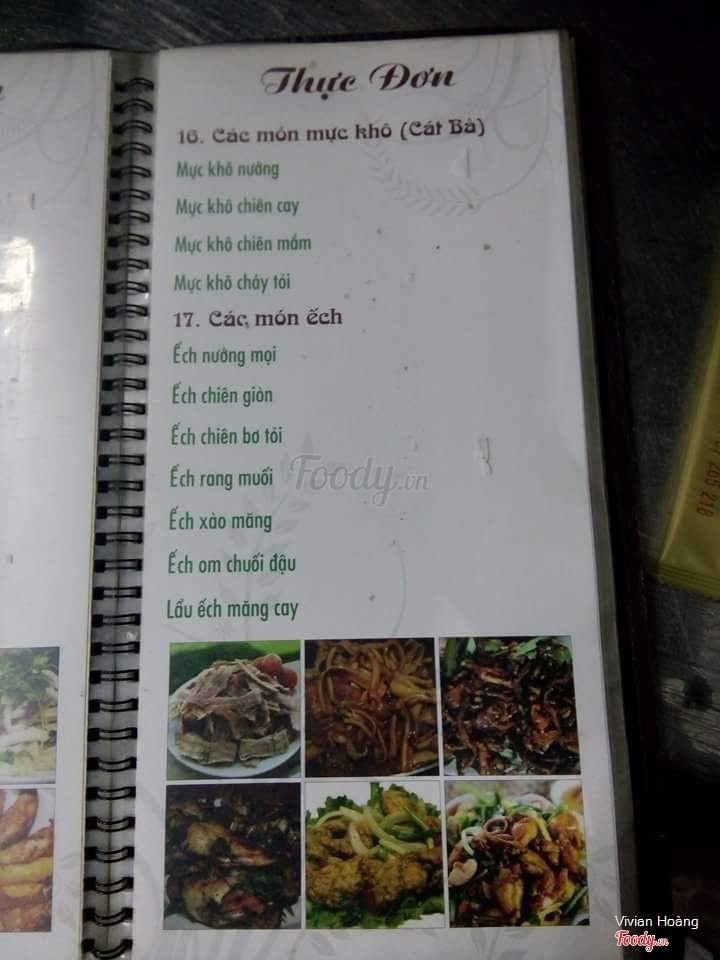 Thực Đơn
16. Các món mực khô (Cát Bà)
Mực khô nướng
Mực khô chiên cay
Mực khô chiên mắm
Mực khô cháy tỏi
17. Các món ếch
Ếch nướng mọi
Ếch chiên giòn
Ếch chiên bơ tỏi
Ếch rang muối
Foody.vn
Ếch xào măng
Ếch om chuối đậu
Lẩu ếch măng cay
265 218
Vivian Hoàng
Foody.vn